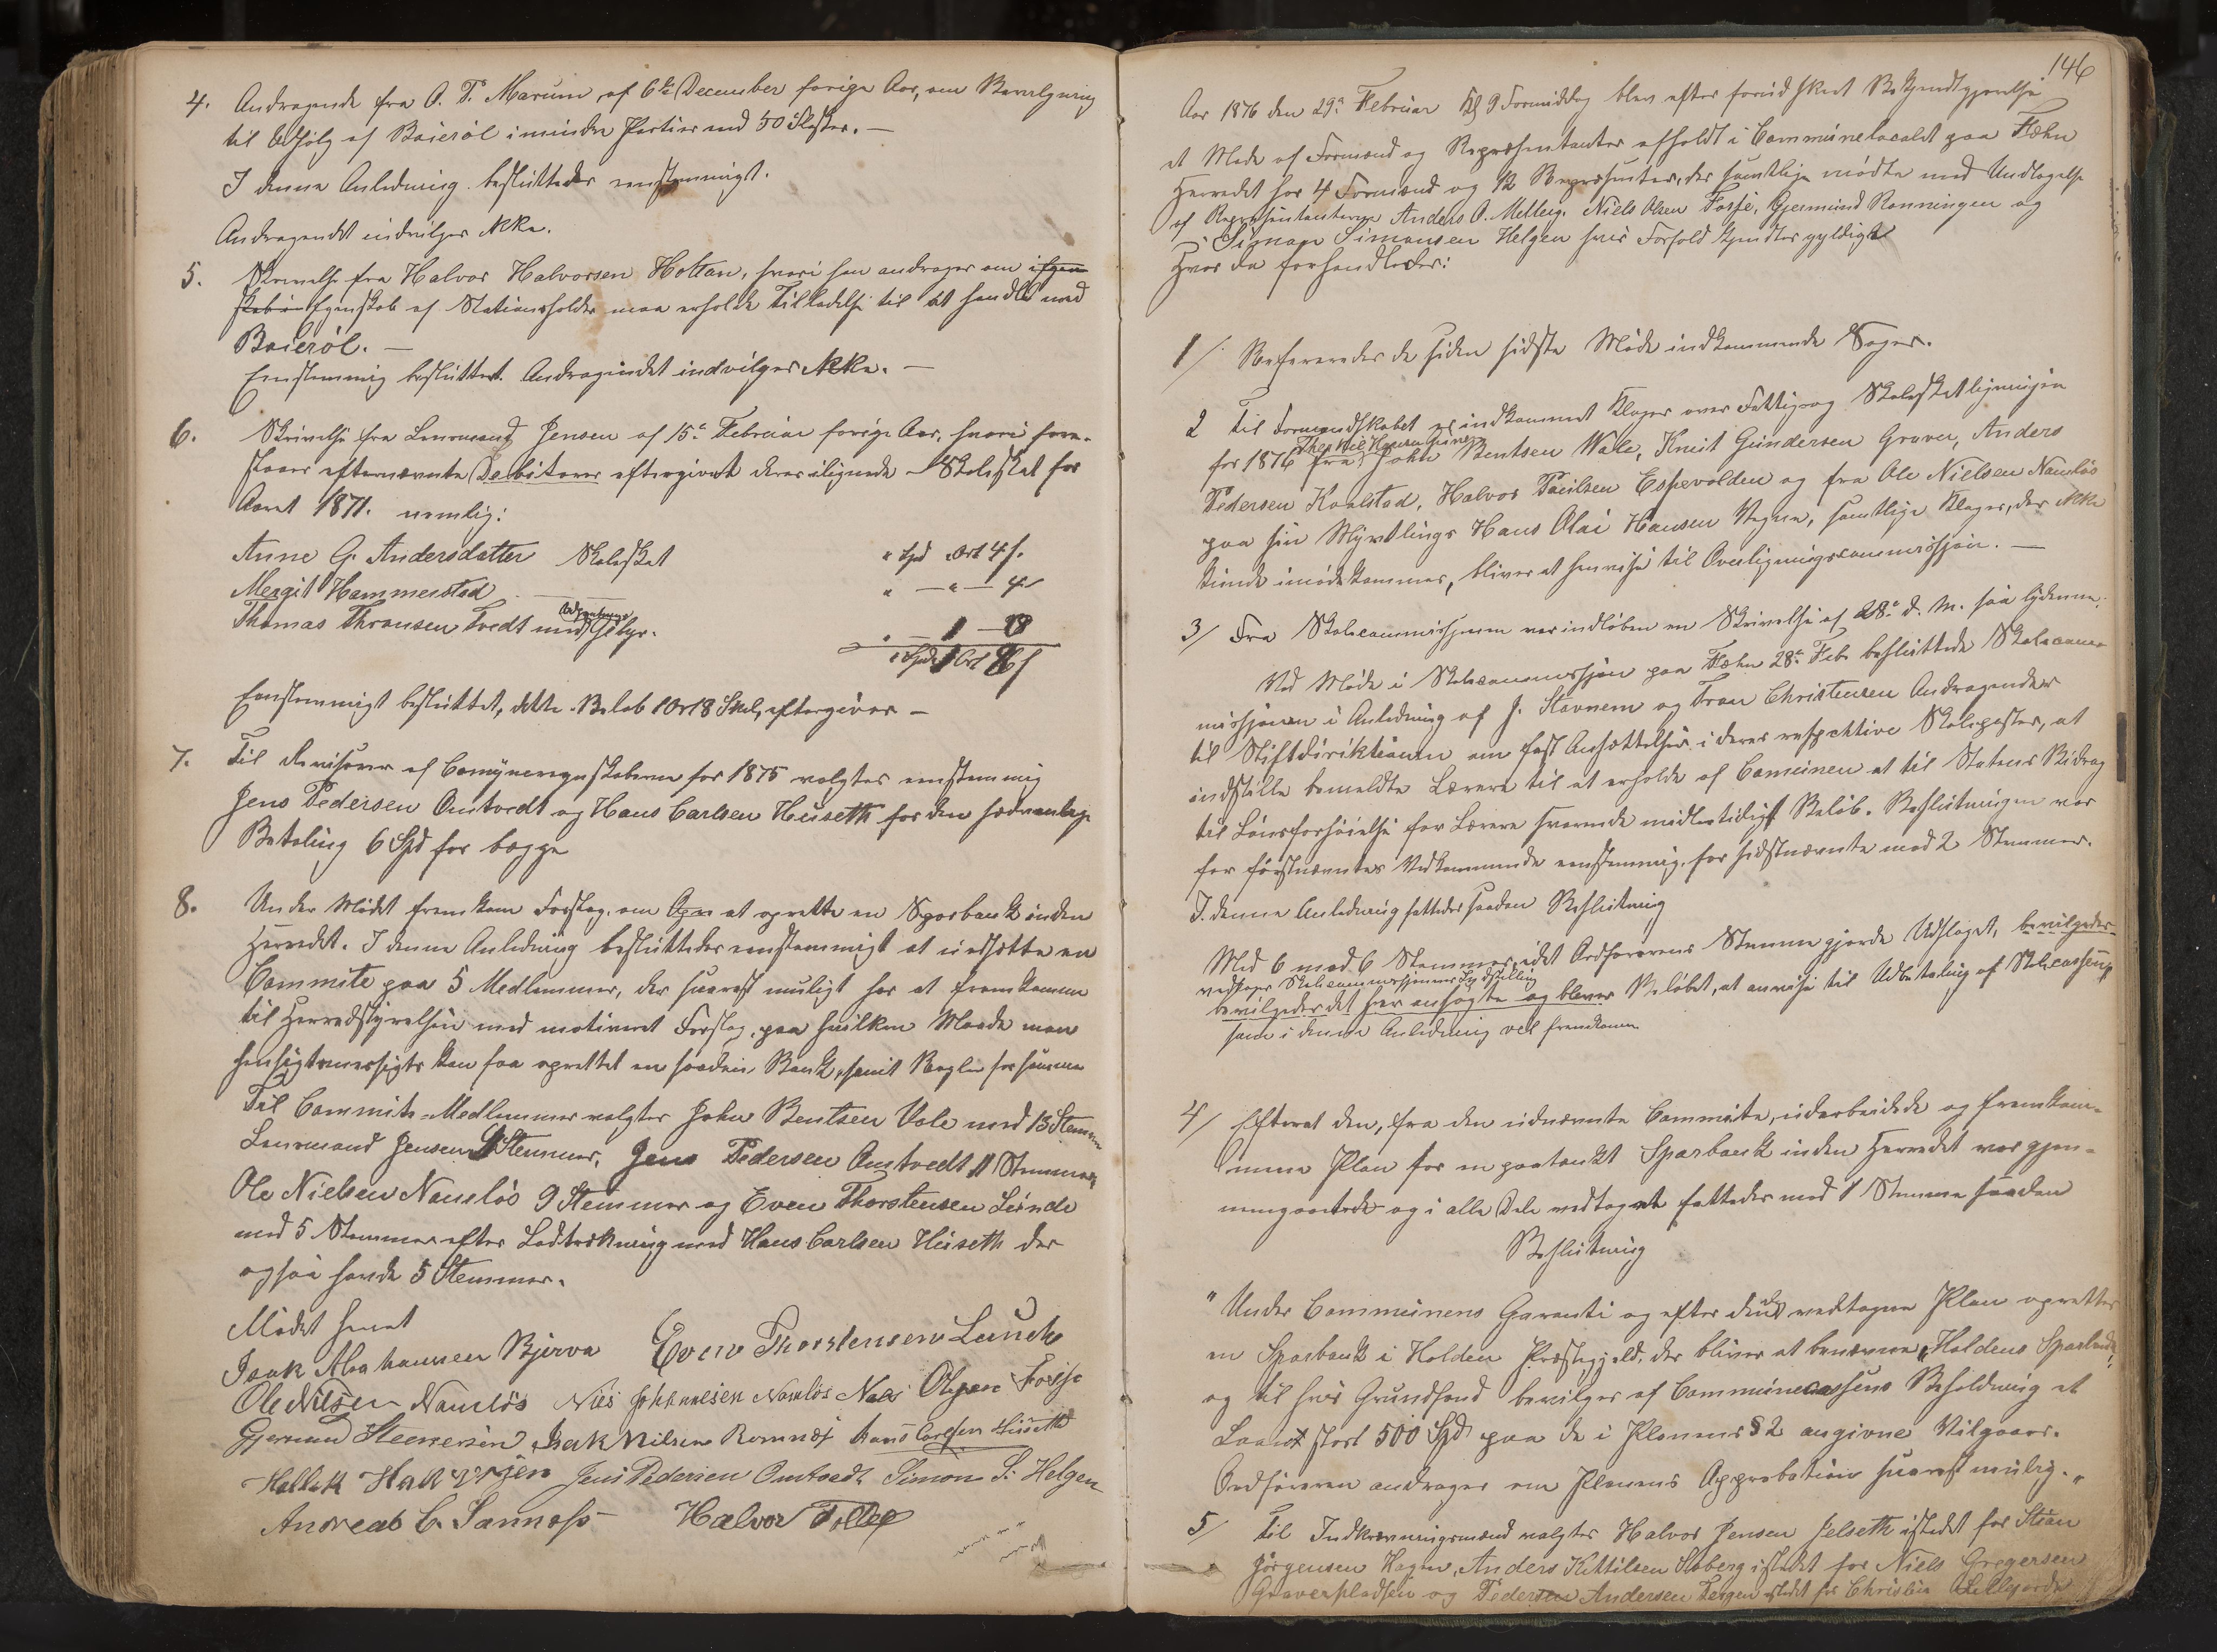 4. Andragende fra O. T. Marum, af 6te December forige Aar, om Bevilgning
til Udsalg af Baierøl i mindre Partier end 50 Flasker. —
I denne Anledning besluttedes eenstemmigt.
Andragendet indvilges ikke.
5. Skrivelse fra Halvor Halvorsen Holtan, hvori han andrager om i Egen-
skab i Egenskab af Stationsholder maa erholde Tilladelse til at handle med
Baierøl. —
Eenstemmig besluttet. Andragendet indvilges ikke. —
6. Skrivelse fra Lensmand Jensen af 15de Februar forige Aar, hvori fore-
slaaes efternævnte Debitorer eftergivet deres ilignede Skoleskat for
Aaret 1871. nemlig:
Anne G. Andersdatter Skoleskat " Spd " Ort 4 s.
Mergit Hammerstad — " — " — 4
Thomas Thronsen Tvedt med
" — 1 — 18
Eenstemmigt besluttet, dette Beløb 1 Ort 8 Skil, eftergives —
7. Til Revisorer af Comuneregnskaberne for 1875 valgtes eenstemmig
Jens Pedersen Omtvedt og Hans Carlsen Huseth for den sædvanlige
Betaling 6 Spd for begge
8. Under Mødet fremkom Forslag, om at oprette en Sparbank inden
Herredet. I denne Anledning besluttedes eenstemmigt at nedsætte en
Commite paa 5 Medlemmer, der snarest muligt har at fremkomme
til Herredsstyrelsen med motiveret Forslag, paa hvilken Maade man
hensigtsmæssigst kan faa oprettet en saadan Bank, samt Regler for samme
Til Commite-Medlemmer valgtes John Bentsen Vale med 13 Stemmer
Lensmand Jensen Stemmer, Jens Pedersen Omtvedt 11 Stemmer,
Ole Nielsen Namløs 9 Stemmer og Even Thorstensen Lunde
med 5 Stemmer efter Lodtrækning med Hans Carlsen Huseth der
ogsaa havde 5 Stemmer.
Mødet hævet
Isak Abrahamsen Bjerva Even Thorstensen Lunde
Ole Nilsen Namløs Nils Johannesen Namløs Niels Olsen Fosse
Gjermund Steenersen Isak Nilsen Romnes Hans Carlsen Huseth
Hallek Halvorsen Jens Pedersen Omtvedt Simon S. Helgen
Andreas C. Sanness Halvor Tollef
146
Aar 1876 den 29de Februar Kl 9 Formiddag blev efter forud skeet Bekjendtgjørelse
et Møde af Formænd og Repræsentanter afholdt i Communelocalet paa Fæhn
Herredet har 4 Formænd og 12 Repræsenter, der samtlige mødte med Undtagelse
af Repræsentanterne Anders O. Melleg. Niels Olsen Fosse, Gjermund Rønningen og
Simon Simonsen Helgen hvis Forfald kjendtes gyldigt
Hvor da forhandledes:
1/ Refereredes de siden sidste Møde indkommende Sager.
2 Til Formandskabet er indkommet Klager over Fattig- og Skoleskatligningen
for 1876 fra John Bentsen Wale, Knut Gundersen Graver, Anders
Pedersen Kaalstad, Halvor Paulsen Espevolden og fra Ole Nielsen Namløs
paa sin Myndtlings Hans Olai Hansen Vegne, samtlige Klager, der ikke
kunde imødekommes, bliver at henvise til Overligningscommissjon. —
3/ Fra Skolecommissjonen var indløben en Skrivelse af 28de d. M. saa lydende:
Ved Møde i Skolecommissjon paa Fæhn 28de Feb. besluttede Skolecom-
missjonen i Anledning af J. Stavnem og Tron Christensen Andragender
til Stiftdirektionen om fast Ansættelser i deres respektive Skoleposter, at
indstille bemeldte Lærere til at erholde af Comunen et til Statens Bidrag
til Lønsforhøielse for Lærere svarende midlertidigt Beløb. Beslutningen var
for førstnævntes Vedkommende eenstemmig, for sidstnævnte med 2 Stemmer.
I denne Anledning fattedes saadan Beslutning
Med 6 mod 6 Stemmer, idet Ordførerens Stemme gjorde Udslaget, bevilgedes
vedtages Skolecommissjonens Indstilling
bevilgedes det her ansøgte og bliver Beløbet, at anvise til Udbetaling af Skolecassen
som i denne Anledning vil fremkomme
4/ Efterat den, fra den udnævnte Commite, udarbeidede og fremkom-
mene Plan for en paatænkt Sparbank inden Herredet var gjen-
nemgaaet og i alle Dele vedtaget fattedes mod 1 Stemme saadan
Beslutning
"Under Communens Garanti og efter den vedtagne Plan oprettes
en Sparbank i Holden Præstegjeld, der bliver at benævne "Holdens Sparbank"
og til hvis Grundfond bevilges af Communecassens Beholdning et
Laan stort 500 Spd paa de i Planens § 2 angivne Vilgaaer.
Ordføreren andrager om Planens Approbation snarest mulig. "
5/ Til Indkrævningsmænd valgtes Halvor Jensen Jelseth istedet for Stian
Jørgensen Hagen, Anders Kittilsen Aaberg istedet for Niels Gregersen
Graverpladsen og Peder Andersen Teigen istedet for Christen Lillegarde